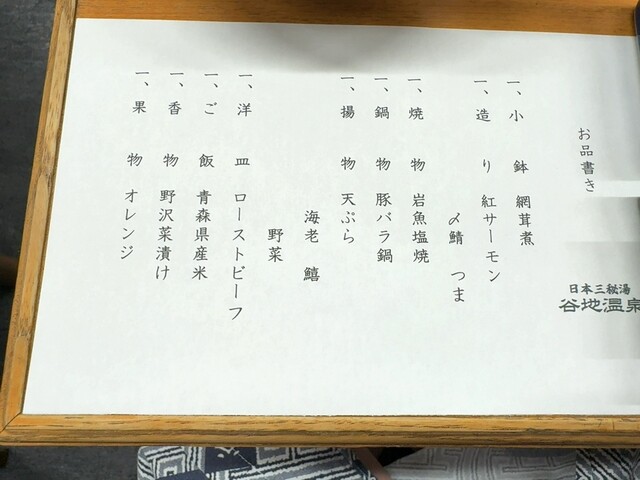 お品書き
日本三秘湯
谷地温泉
一、小 鉢 網茸煮
一、造 り 紅サーモン
〆鯖 つま
一、焼 物 岩魚塩焼
一、鍋 物 豚バラ鍋
一、揚 物 天ぷら
海老 鱚
野菜
一、洋 皿 ローストビーフ
一、ご 飯 青森県産米
一、香 物 野沢菜漬け
一、果 物 オレンジ